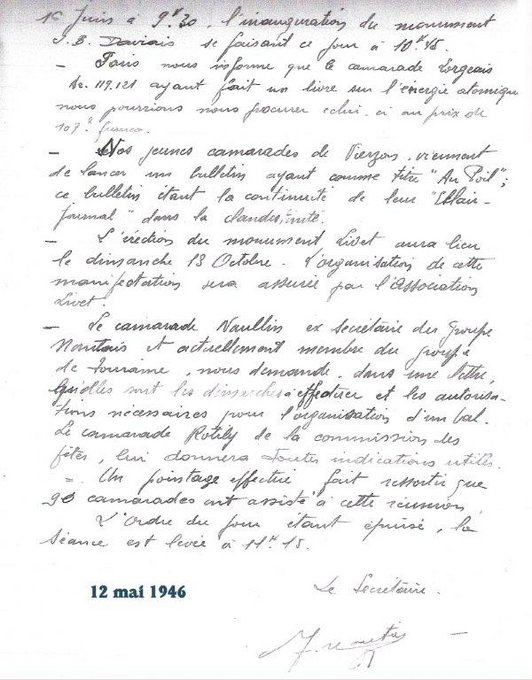 1er Juin à 9h30, l'inauguration du monument
J.B. Daviais se faisant ce jour à 10h45.
- Paris nous informe que le camarade Lorgeais
An. 119.121 ayant fait un livre sur l'énergie atomique
nous pourrions nous procurer celui-ci au prix de
107 francs.
- Nos jeunes camarades de Vierzon, viennent
de lancer un bulletin ayant comme titre "Au Poil";
ce bulletin étant la continuité de leur "Eclair-
journal" dans la clandestinité.
- L'érection du monument Livet aura lieu
le dimanche 13 Octobre. L'organisation de cette
manifestation sera assurée par l'Association
Livet.
- Le camarade Naullin ex secrétaire du Groupe
Nantais et actuellement membre du groupe
de Touraine, nous demande, dans une lettre,
quelles sont les démarches à effectuer et les autorisa-
tions nécessaires pour l'organisation d'un bal.
Le camarade Rotily de la commission des
fêtes, lui donnera toutes indications utiles.
- Un pointage effectué fait ressortir que
90 camarades ont assisté à cette réunion.
L'Ordre du jour étant épuisé, la
séance est levée à 11h15.
12 mai 1946
Le Secrétaire.